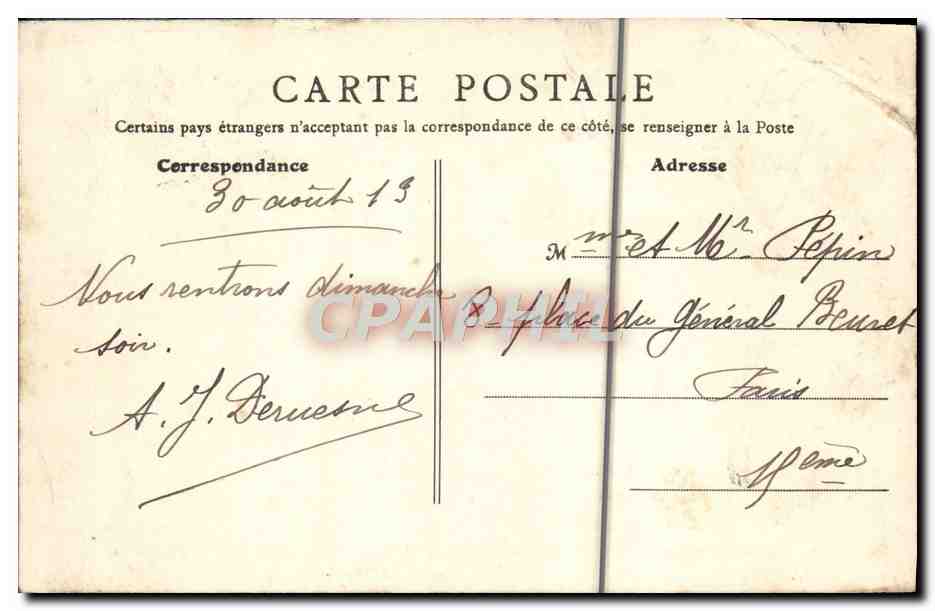 CARTE POSTALE
Certains pays étrangers n'acceptant pas la correspondance de ce côté, se renseigner à la Poste
Correspondance
30 août 13
Nous rentrons dimanche
soir.
A. J. Deruesne
Adresse
M me et Mr Pepin
8 place du général Beuret
Paris
15eme
CPAPHIL